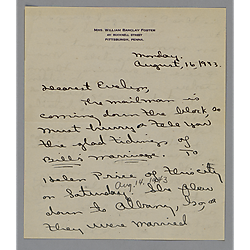 MRS. WILLIAM BARCLAY FOSTER
BUCKNELL STREET
PITTSBURGH, PENNA.
Monday
August, 16, 1943.
Dearest Evelyn,
The mailman is
coming down the block, so
must hurry to tell you
the glad tidings, of
Bill's marriage. To
Helen Price of this city
on Saturday. She flew
Aug. 14, 1943
down to Albany, Ga., or
they were married